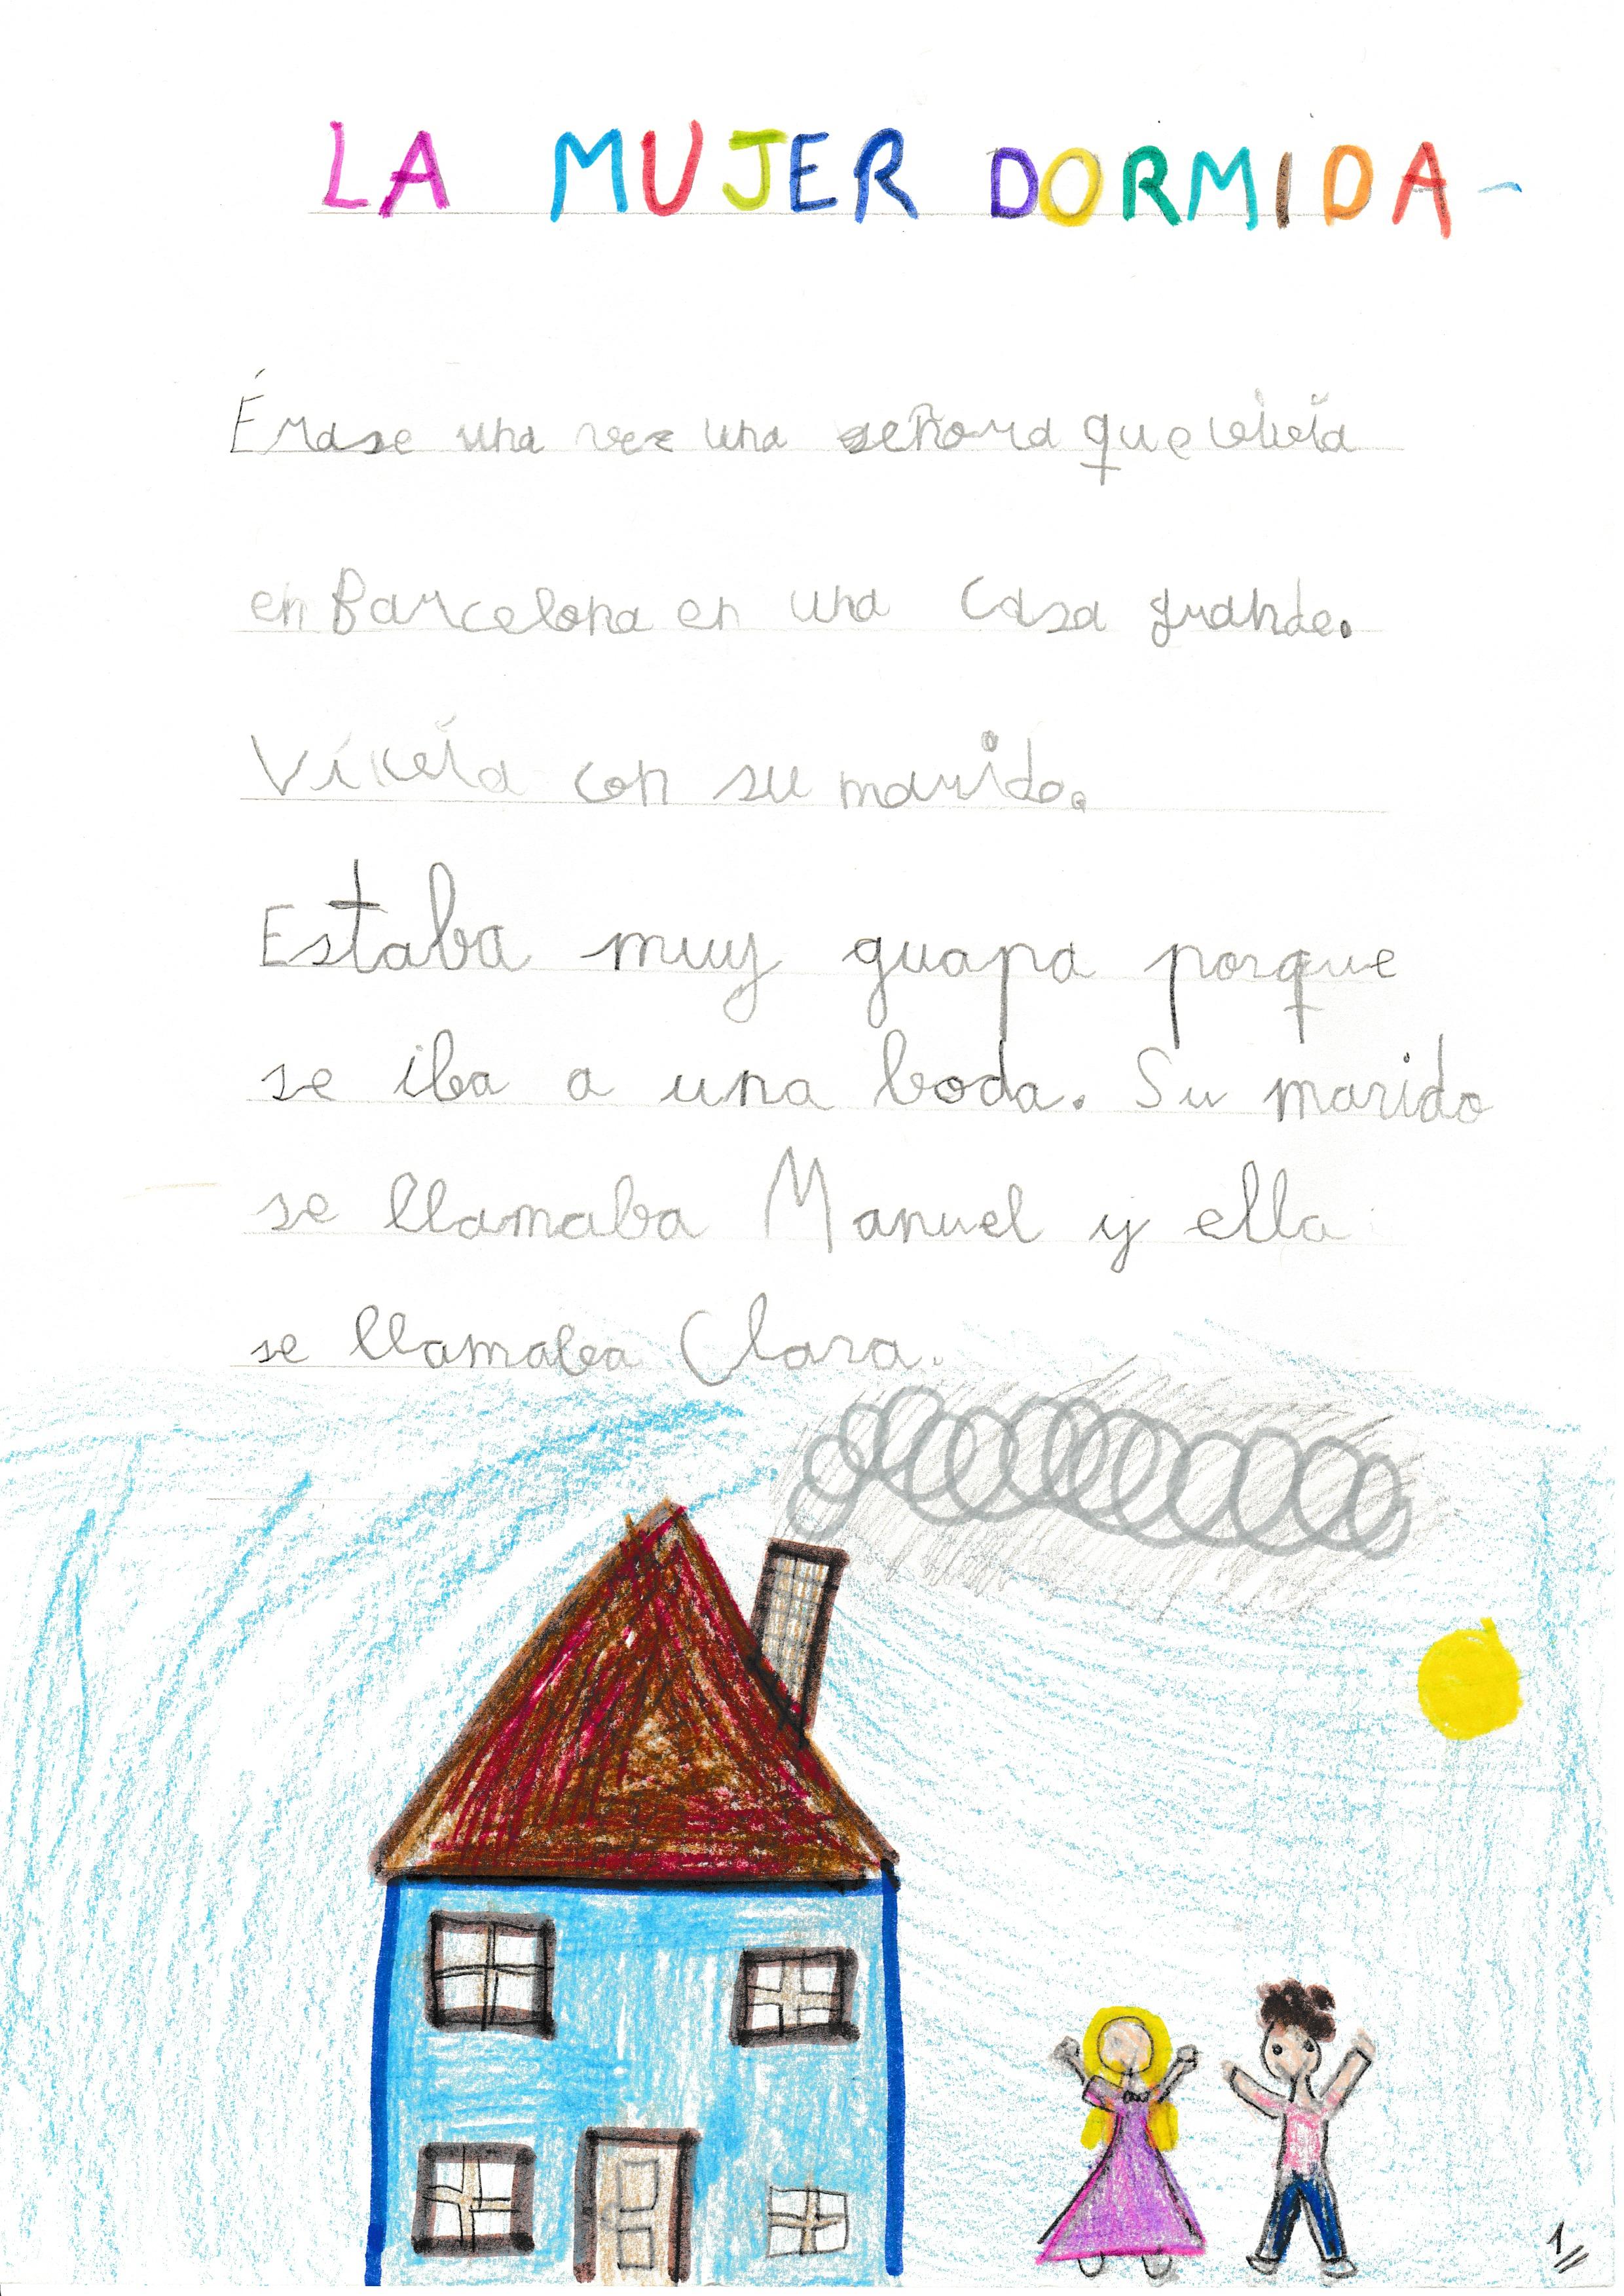 LA MUJER DORMIDA-
Érase una vez una señora que vivía
en Barcelona en una casa grande.
Vivía con su marido.
Estaba muy guapa porque
se iba a una boda. Su marido
se llamaba Manuel y ella
se llamaba Clara.
1